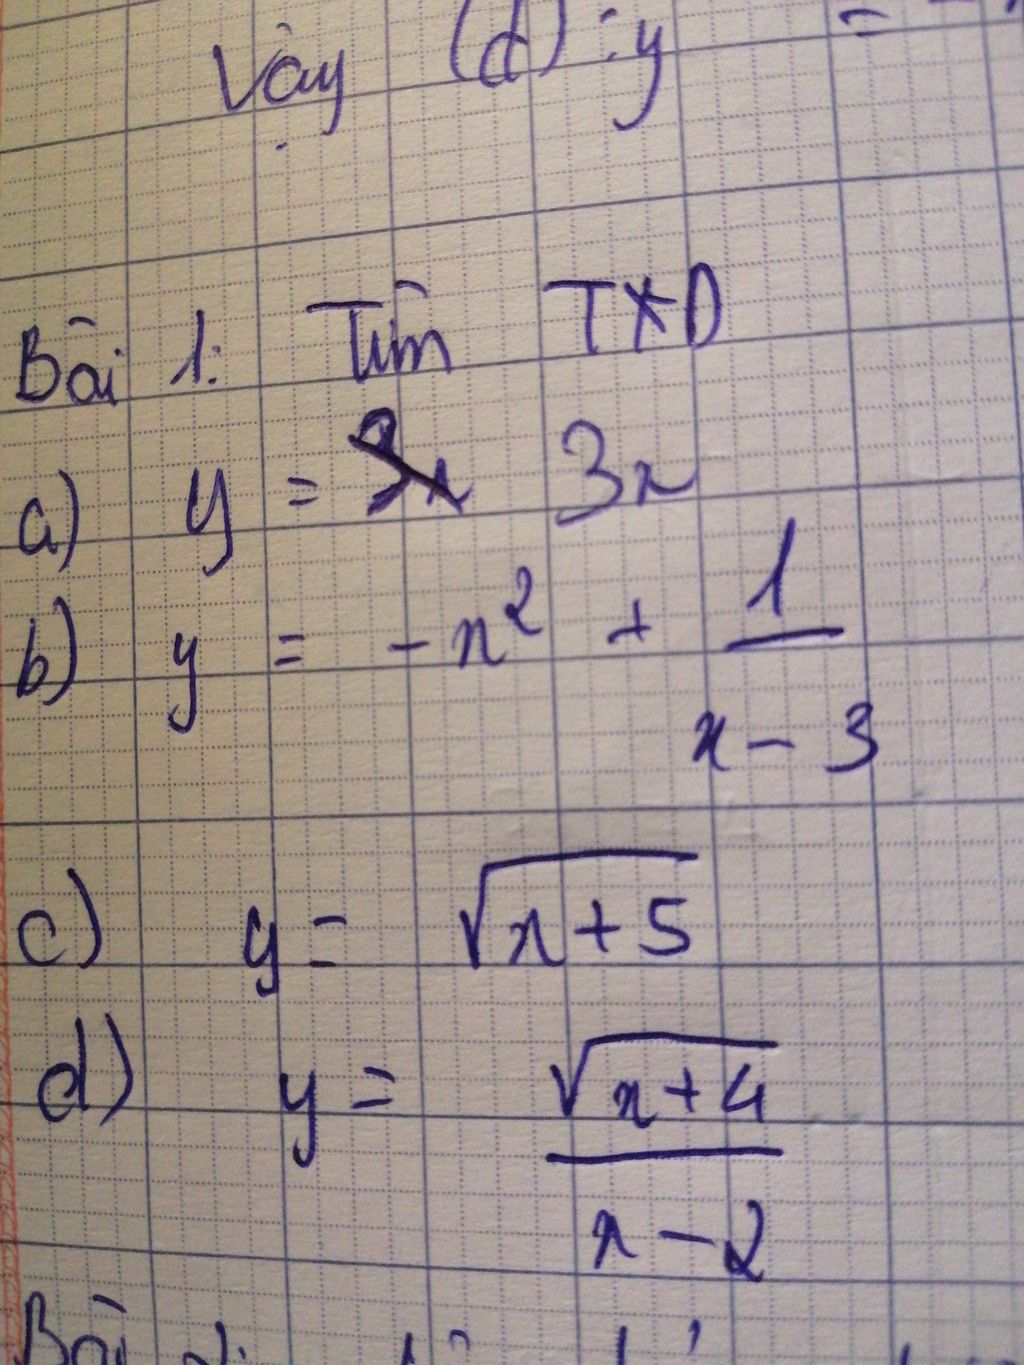 Vậy (d) : y =
Bài 1: Tìm TXD
a) y = 3x
b) y = -x² + 1/(x - 3)
c) y = √(x + 5)
d) y = √(x + 4)/(x - 2)
Bài